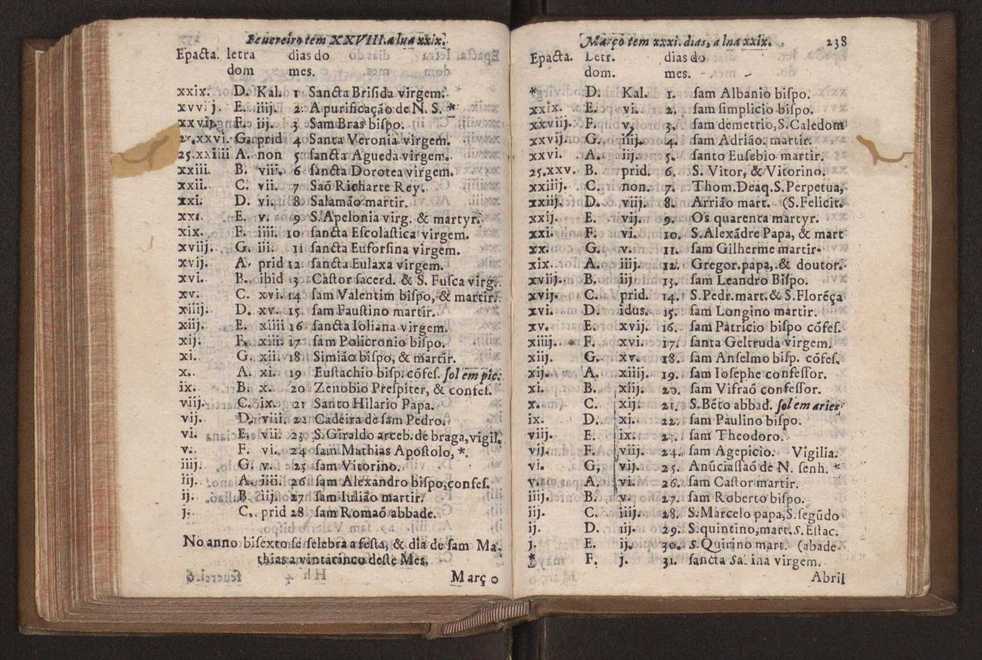 Feuereiro tem XXVIII. a lua xxix.
Epacta. letra dias do
dom mes.
xxix. D. Kal. 1 Sancta Brisida virgem.
xxvij. E. iiij. 2 A purificação de N. S. *
F. iij. 3 Sam Bras bispo.
G. prid 4 Santa Veronia virgem.
25.xxiiii A. non 5 sancta Agueda virgem.
xxiii. B. viii. 6 sancta Dorotea virgem.
xxii. C. vii. 7 Saõ Richarte Rey.
xxi. D. vi. 8 Salamão martir.
xx. E. v. 9 S. Apelonia virg. & martyr.
xix. F. iiii. 10 sancta Escolastica virgem.
xviij. G. iii. 11 sancta Euforsina virgem.
xvij. A. prid 12 sancta Eulaxa virgem.
xvi. B. ibid 13 Castor sacerd. & S. Fusca virg.
xv. C. xvi. 14 sam Valentim bispo, & martir.
xiiij. D. xv. 15 sam Faustino martir.
xiij. E. xiiii 16 sancta Ioliana virgem.
xij. F. xiii 17 sam Policronio bispo.
xi. G. xii. 18 Simião bispo, & martir.
x. A. xi. 19 Eustachio bisp. cõfes. sol em pic:
ix. B. x. 20 Zenobio Prespiter, & confes.
viij. C. ix. 21 Santo Hilario Papa.
vij. D. viii. 22 Cadeira de sam Pedro.
vi. E. vii. 23 S. Giraldo arceb. de braga, vigil.
v. F. vi. 24 sam Mathias Apostolo, *.
iiij. G. v. 25 sam Vitorino.
iij. A. iiii. 26 sam Alexandro bispo, confes.
ij. B iij. 27 sam Iulião martir.
j. C. prid 28 sam Romaõ abbade.
No anno bisexto se selebra a festa, & dia de sam Ma-
thias a vintacinco deste Mes.
Março
Março tem xxxi. dias, a lua xxix. 238
Epacta. Letr. dias do
dom. mes.
* D. Kal. 1. sam Albanio bispo.
xxix. E. vi. 2. sam simplicio bispo.
xxviij. F. v. 3. sam demetrio, S. Caledom
xxvij. G. iiij. 4. sam Adrião. martir.
xxvi. A. iij. 5. santo Eusebio martir.
25.xxv. B. prid. 6. S. Vitor, & Vitorino.
xxiiij. C. non. 7. Thom. Deaq. S. Perpetua,
xxiij. D. viij. 8. Arrião mart. (S. Felicit.
xxij. E. vij. 9. Os quarenta martyr.
xxi. F. vi. 10. S. Alexãdre Papa, & mart
xx. G. v. 11. sam Gilherme martir.
xix. A. iiij. 12. Gregor. papa, & doutor.
xviij. B iij 13. sam Leandro Bispo.
xvij. C. prid. 14. S. Pedr. mart. & S. Florẽça
xvi. D. idus. 15. sam Longino martir.
xv. E. xvij. 16. sam Patricio bispo cõfes.
xiiij. F. xvi. 17. santa Geltruda virgem.
xiij. G. xv. 18. sam Anselmo bisp. cõfes.
xij. A. xiiij. 19. sam Iosephe confessor.
xi. B. xiij. 20. sam Vifraõ confessor.
x. C. xij. 21. S. Bẽto abbad. sol em aries
ix. D. xi. 22. sam Paulino bispo.
viij. E. ix. 23. sam Theodoro.
vij. F. viij. 24. sam Agepicio. Vigilia.
vi. G, vij. 25. Anũciassaõ de N. senh. *
v. A. vi. 26. sam Castor martir.
iiij. B. v. 27. sam Roberto bispo.
iij. C. iiij. 28. S. Marcelo papa, S. segũdo
ij. D. iij. 29. S. quintino, mart. S. Estac.
j. E. ij. 30. S. Quirino mart. (abade
* F. j. 31. sancta Sabina virgem.
Abril